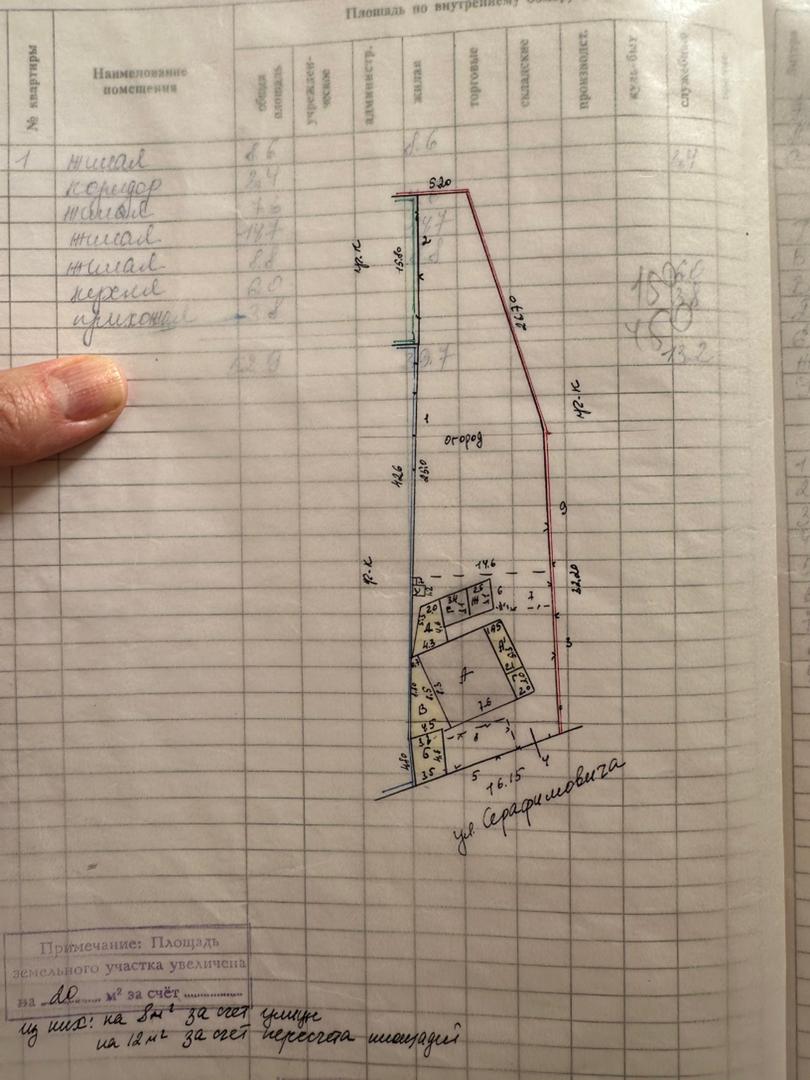 Площадь по внутреннему
№ квартиры
Наименование помещения
общая площадь
учрежден-ческое
администр.
жилая
торговые
складские
производст.
культ-быт
служебные
1 жилая 8.6 8.6
коридор 2,4 2,4
жилая 7.6
жилая 14.7 14.7
жилая 8.8 8.8
кухня 6.0 6.0
прихожая 3.8 3.8
52.9 39.7 13.2
5.20
гр.к
15.80
2
26.70
гр.к
1
огород
42.6
25.10
9
гр-к
14.6
32.20
6
7
3
2.0
4.3
А
7.6
В
4.5
Б
4.80
3.5
8
5
4
16.15
ул. Серафимовича
Примечание: Площадь
земельного участка увеличена
на 20 м² за счёт
из них: на 8м² за счет улицы
на 12м² за счет пересчета площадей